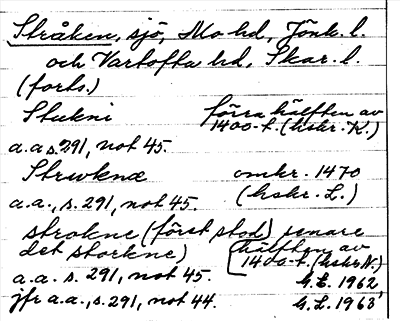 Stråken, sjö, Mo hd, Jönk. l.
och Vartofta hd, Skar. l.
(forts.)
Stukni förra hälften av
1400-t. (hskr. K.)
a.a s. 291, not 45.
Strwknæ omkr. 1470
a.a., s. 291, not 45. (hskr. L.)
strokne (först stod) senare
det storkne) hälften av
1400-t. (hskr N.)
a.a. s. 291, not 45. G.L. 1962,
jfr a.a., s. 291, not 44. G.L. 1963